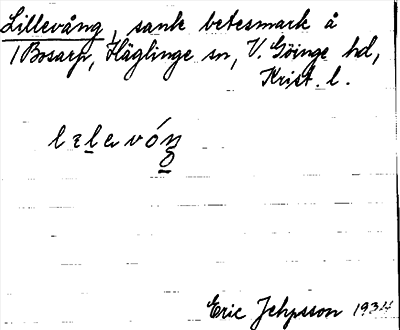 Lillevång, sank betesmark å
1 Bosarp, Häglinge sn, V. Göinge hd,
Krist. l.
Eric Jepsson 1934